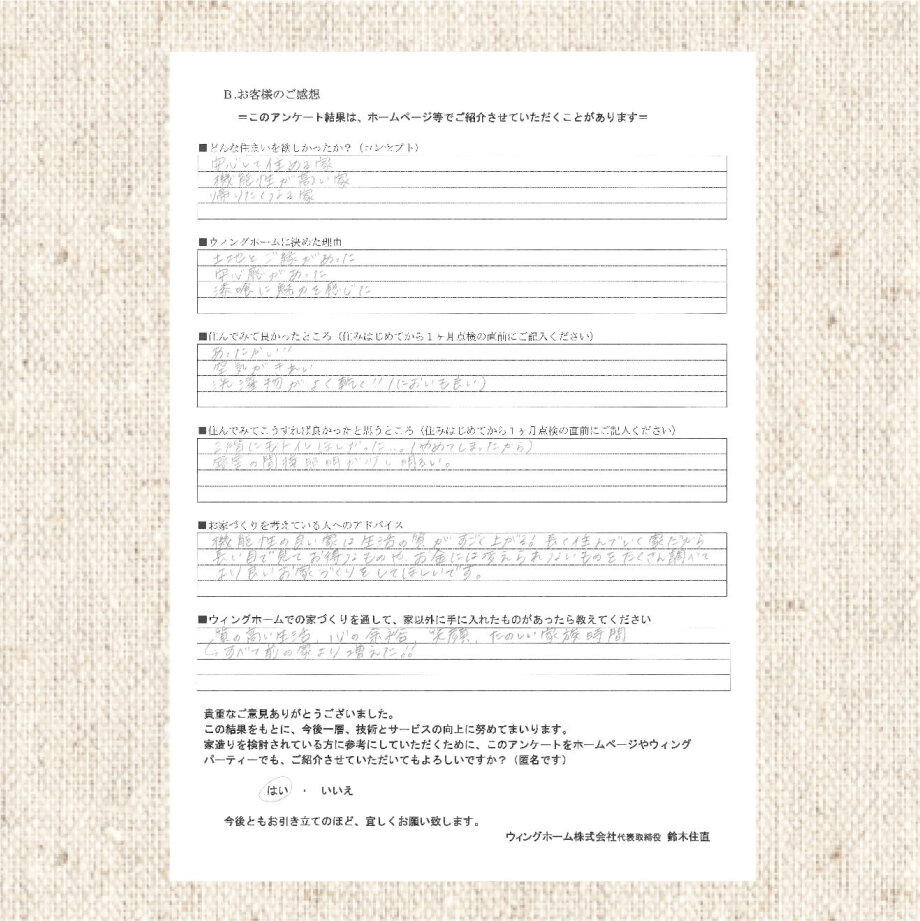 B.お客様のご感想
=このアンケート結果は、ホームページ等でご紹介させていただくことがあります=
■どんな住まいを欲しかったか?(コンセプト)
安心して住める家
機能性が高い家
帰りたくなる家
■ウィングホームに決めた理由
土地とご縁があった
安心感があった
漆喰に魅力を感じた
■住んでみて良かったところ(住みはじめてから1ヶ月点検の直前にご記入ください)
あったかい!!
空気がきれい
洗濯物がよく乾く!!(においも良い)
■住んでみてこうすれば良かったと思うところ(住みはじめてから1ヶ月点検の直前にご記入ください)
2階にもトイレほしかった…。(やめてしまったから)
寝室の間接照明が少し明るい。
■お家づくりを考えている人へのアドバイス
機能性の良い家は生活の質がすごく上がる!!長く住んでいく家だから
長い目で見てお得なものや、お金には変えられないものをたくさん調べて
より良いお家づくりをしてほしいです。
■ウィングホームでの家づくりを通して、家以外に手に入れたものがあったら教えてください
質の高い生活、心の余裕、笑顔、たのしい家族時間
↳すべて前の家より増えた!!
貴重なご意見ありがとうございました。
この結果をもとに、今後一層、技術とサービスの向上に努めてまいります。
家造りを検討されている方に参考にしていただくために、このアンケートをホームページやウィング
パーティーでも、ご紹介させていただいてもよろしいですか?(匿名です)
はい ・ いいえ
今後ともお引き立てのほど、宜しくお願い致します。
ウィングホーム株式会社代表取締役 鈴木住直